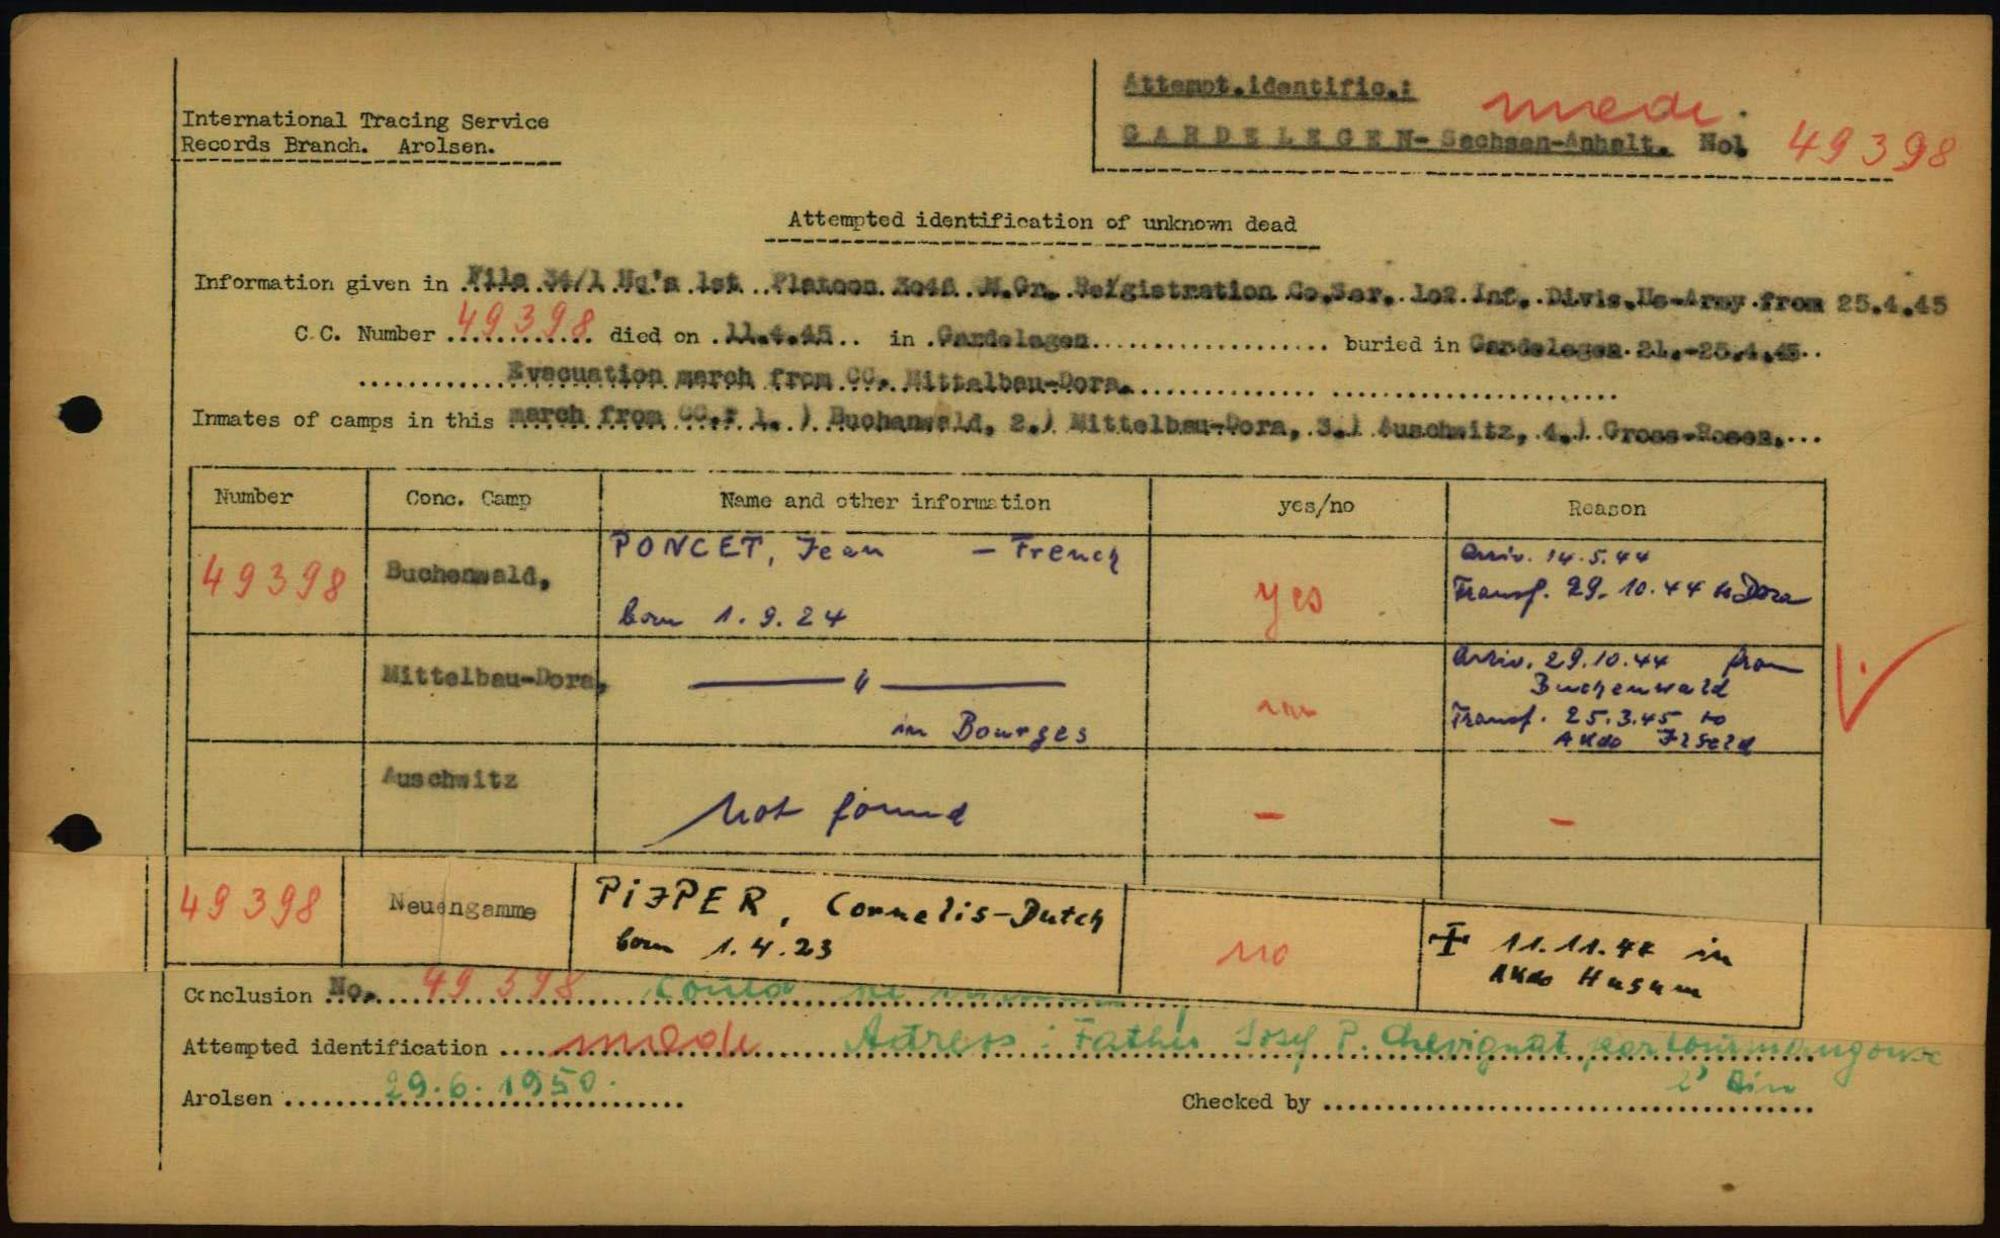 International Tracing Service
Records Branch. Arolsen.
Attempt.identific.:
made.
GARDELEGEN-Sachsen-Anhalt. No. 49398
Attempted identification of unknown dead
Information given in File 34/1 Hq's 1st Platoon 3046 M.Gr. Re/gistration Co.Ser. 1o2 Inf. Divis.Us-Army from 25.4.45
C.C. Number 49398 died on 11.4.45 in Gardelegen buried in Gardelegen 21.-25.4.45
Evacuation march from CC. Mittelbau-Dora.
Inmates of camps in this march from CC.: 1.) Buchenwald, 2.) Mittelbau-Dora, 3.) Auschwitz, 4.) Gross-Rosen.
Number Conc. Camp Name and other information yes/no Reason
49398 Buchenwald, PONCET, Jean - French yes Arriv. 14.5.44
born 1.9.24 Transf. 29.10.44 to Dora
Mittelbau-Dora, — " — Arriv. 29.10.44 from
Buchenwald
in Bourges Transf. 25.3.45 to
AKdo Ilfeld
Auschwitz not found - -
49398 Neuengamme PIJPER, Cornelis-Dutch no 11.11.44 in
born 1.4.23 AKdo Husum
Conclusion No. 49398 Could
Attempted identification made Adress: Father Josef P. Chevignat par
Ain
Arolsen 29.6.1950. Checked by